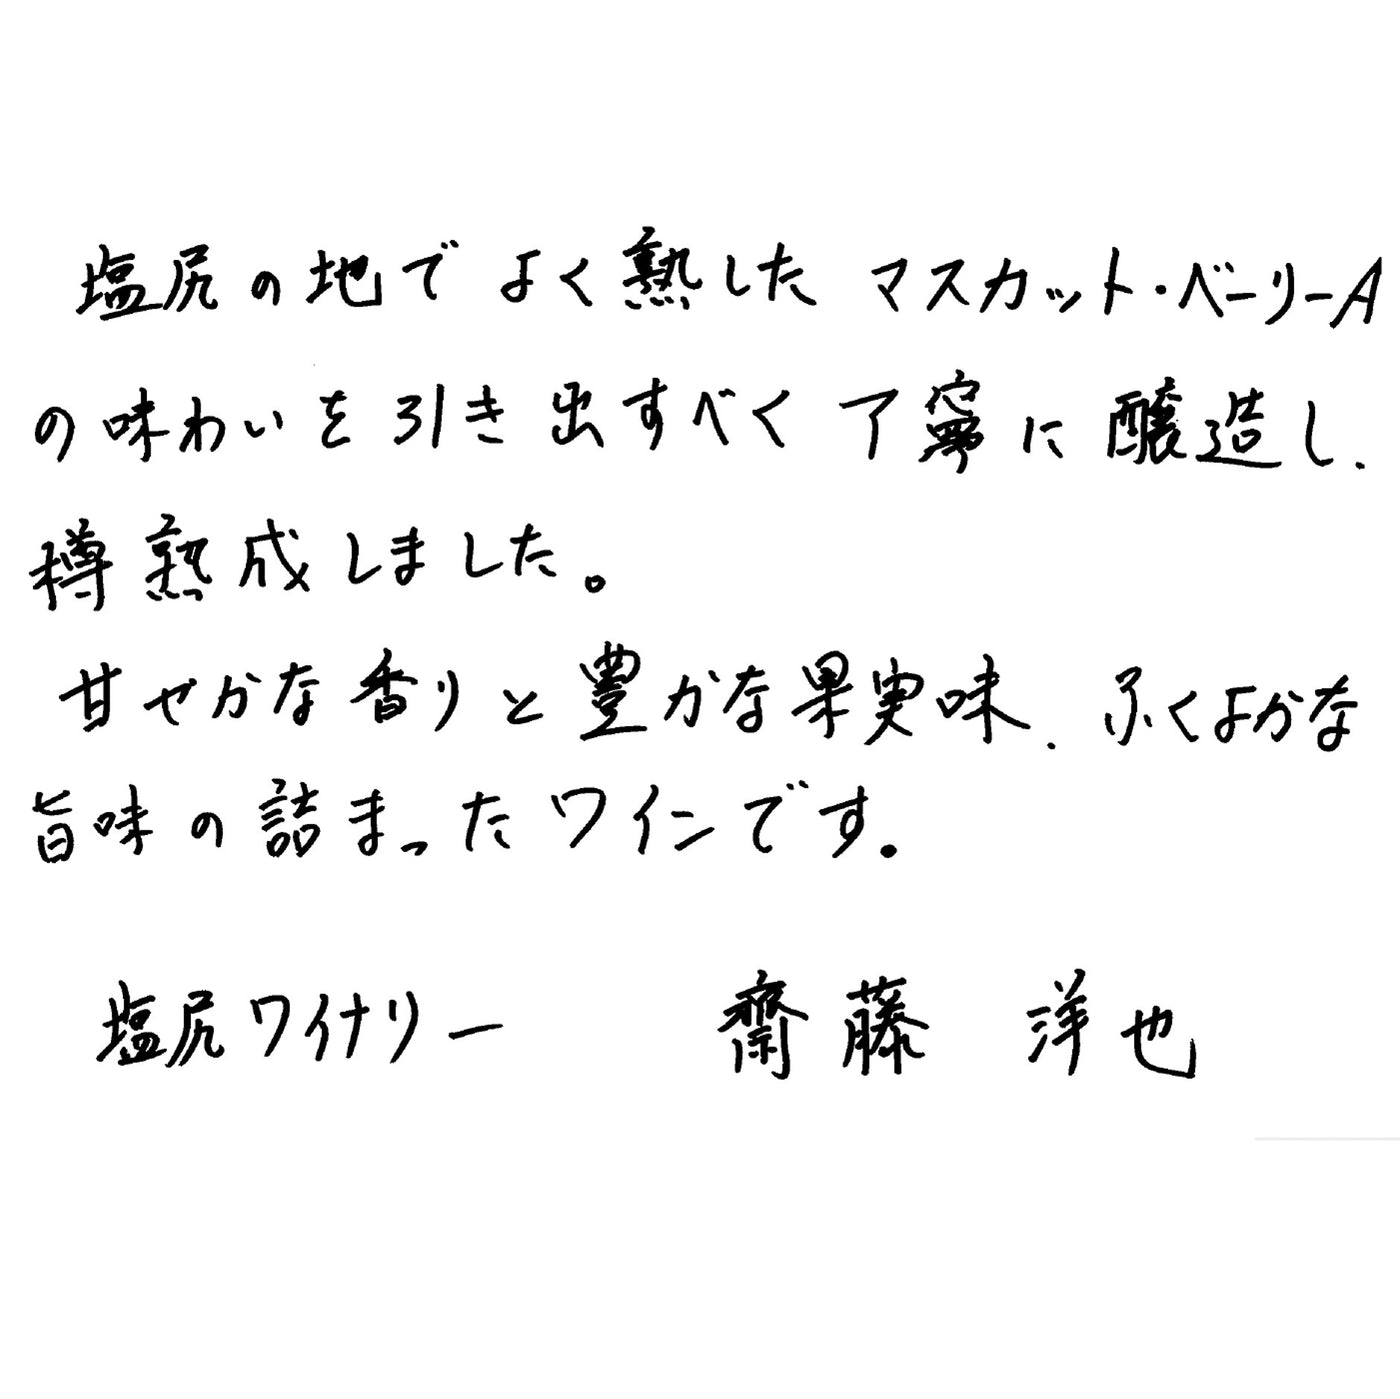 塩尻の地でよく熟したマスカット・ベーリーA
の味わいを引き出すべく丁寧に醸造し、
樽熟成しました。
甘やかな香りと豊かな果実味、ふくよかな
旨味の詰まったワインです。
塩尻ワイナリー 齋藤 洋也